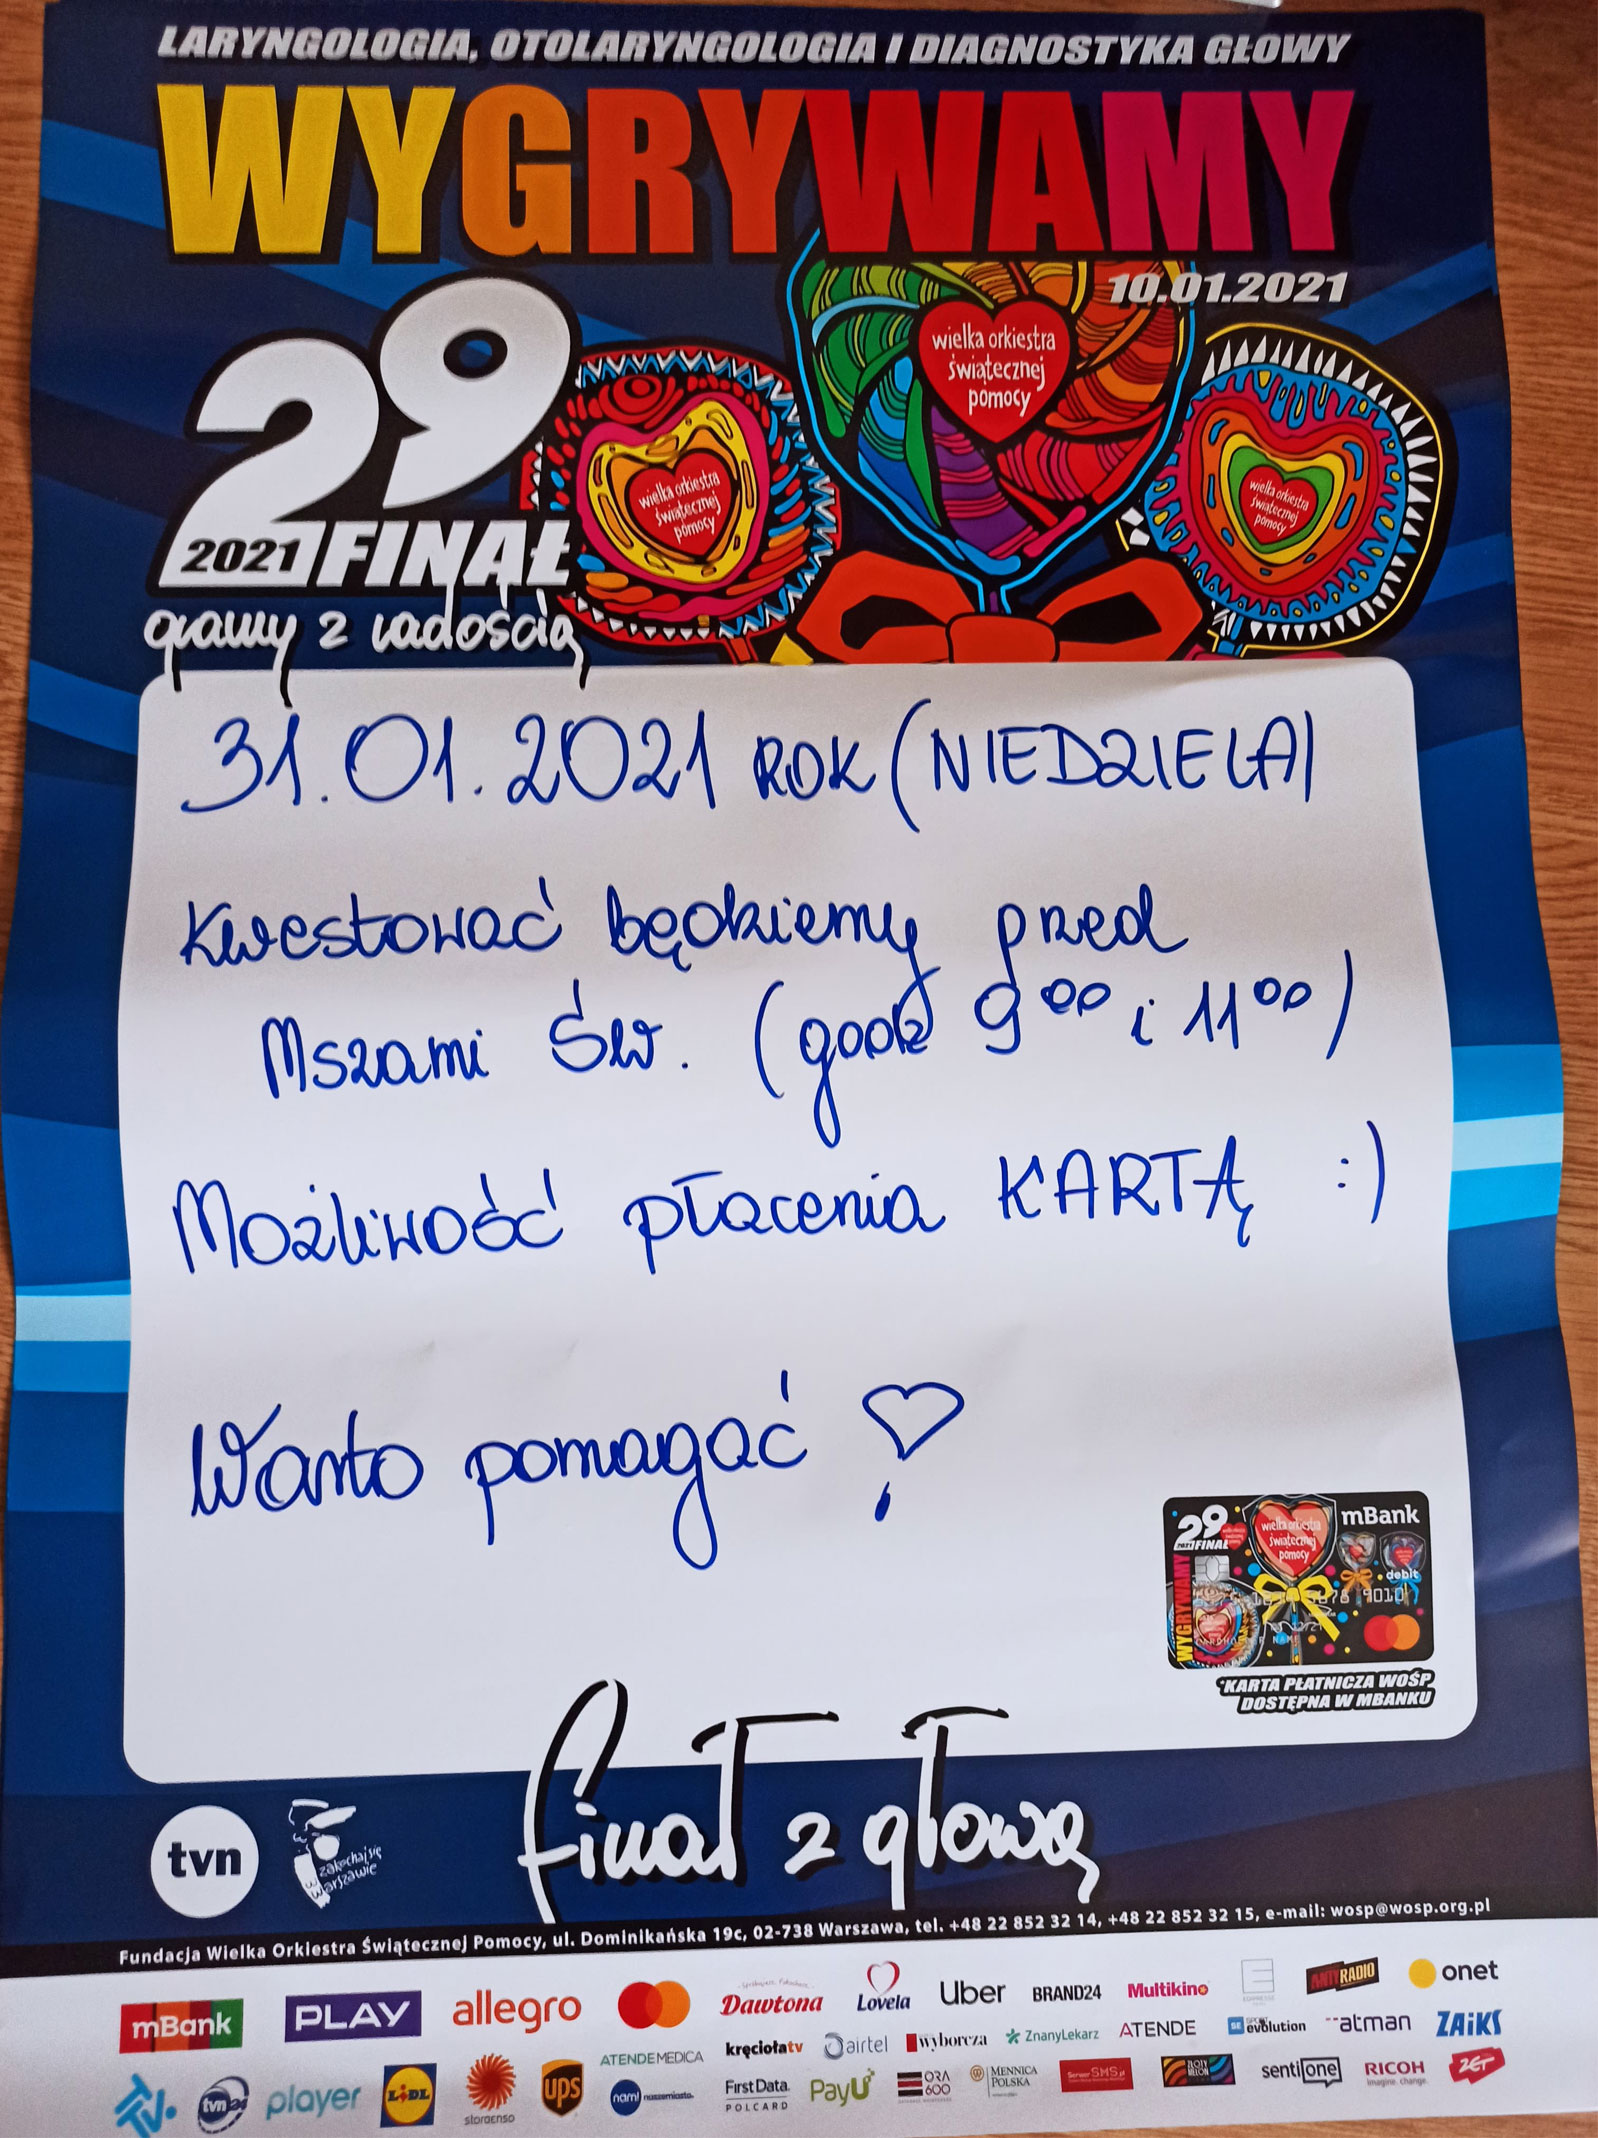 LARYNGOLOGIA, OTOLARYNGOLOGIA I DIAGNOSTYKA GŁOWY
WYGRYWAMY
10.01.2021
29
2021 FINAŁ
gramy z radością
wielka orkiestra
świątecznej
pomocy
wielka orkiestra
świątecznej
pomocy
wielka orkiestra
świątecznej
pomocy
31.01.2021 ROK (NIEDZIELA)
Kwestować będziemy przed
Mszami Św. (godz 9⁰⁰ i 11⁰⁰)
Możliwość płacenia KARTĄ :)
Warto pomagać
29 mBank
2021 FINAŁ
wielka orkiestra
świątecznej
pomocy
debit
WYGRYWAMY
5678 9010
KARTA PŁATNICZA WOŚP
DOSTĘPNA W MBANKU
finał z głową
tvn
zakochaj się
w Warszawie
Fundacja Wielka Orkiestra Świątecznej Pomocy, ul. Dominikańska 19c, 02-738 Warszawa, tel. +48 22 852 32 14, +48 22 852 32 15, e-mail: wosp@wosp.org.pl
mBank PLAY allegro Dawtona Lovela Uber BRAND24 Multikino ANTYRADIO onet
kręciołatv airtel wyborcza ZnanyLekarz ATENDE evolution atman ZAiKS
tvn24 player LiDL storaenso ups ATENDE MEDICA
nam! naszemiasto First Data PayU ORA 600 MENNICA POLSKA SerwerSMS.pl ZŁOTY MELON sentione RICOH ZET
POLCARD imagine. change.